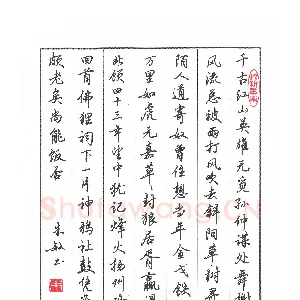 千古江山英雄无觅孙仲谋处舞榭
风流总被雨打风吹去斜阳草树寻
陌人道寄奴曾住想当年金戈铁
万里如虎元嘉草草封狼居胥赢
北顾四十三年望中犹记烽火扬州路
回首佛狸祠下一片神鸦社鼓凭谁
颇老矣尚能饭否
朱敏书
Shufawang.CN